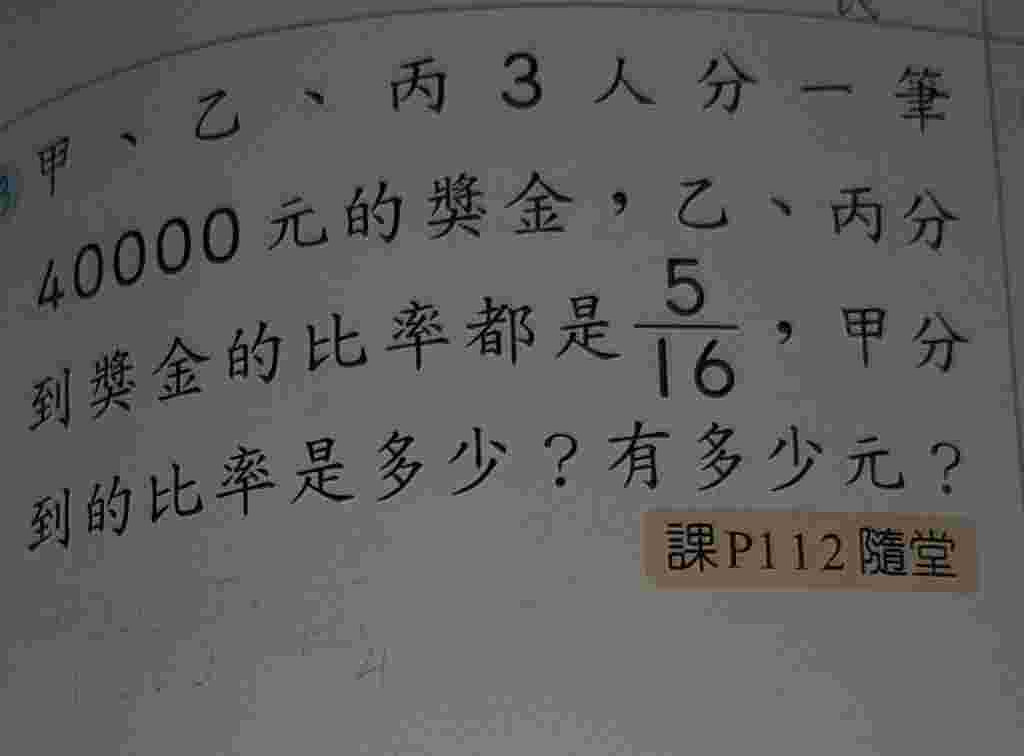 甲、乙、丙3人分一筆
40000元的獎金，乙、丙分
到獎金的比率都是5/16，甲分
到的比率是多少？有多少元？
課P112隨堂